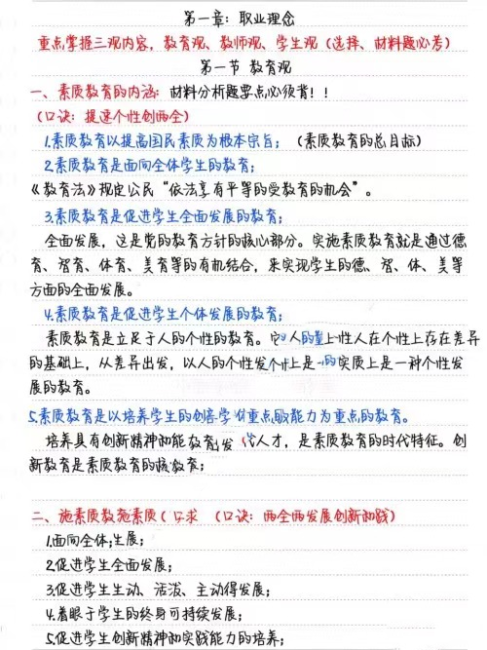 第一章：职业理念
重点掌握三观内容，教育观、教师观、学生观（选择、材料题必考）
第一节 教育观
一、素质教育的内涵：材料分析题要点必须背！！
（口诀：提速个性创两全）
1.素质教育以提高国民素质为根本宗旨；（素质教育的总目标）
2.素质教育是面向全体学生的教育；
《教育法》规定公民“依法享有平等的受教育的机会”。
3.素质教育是促进学生全面发展的教育；
全面发展，这是党的教育方针的核心部分。实施素质教育就是通过德
育、智育、体育、美育等的有机结合，来实现学生的德、智、体、美等
方面的全面发展。
4.素质教育是促进学生个体发展的教育；
素质教育是立足于人的个性的教育。它 人的 上性人在个性上存在差异
的基础上，从差异出发，以人的个性发 上是 的实质上是一种个性发
展的教育。
5.素质教育是以培养学生的创 学 重点 能力为重点的教育。
培养具有创新精神和能 教育 发 人才，是素质教育的时代特征。创
新教育是素质教育的核 教育；
二、施素质教施素质（ 求 （口诀：两全两发展创新和践）
1.面向全体 生展；
2.促进学生全面发展；
3.促进学生生动、活泼、主动得发展；
4.着眼于学生的终身可持续发展；
5.促进学生创新精神和实践能力的培养；